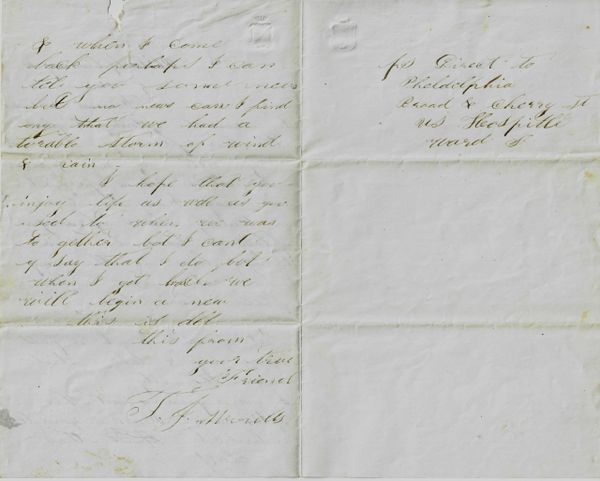 & when I come
back perhaps I can
tel you some news
but no news can I find
ony that we had a
torable storm of wind
& rain
I hope that you
injoy life us wel us you
used to when we was
to gether but I cant
say that I do but
when I got back we
will begin a new
this is all
this from
your true
Friend
T. J.
Ps Direct to
Pheldelphia
Broad & Cherry St
US Hospitle
Ward